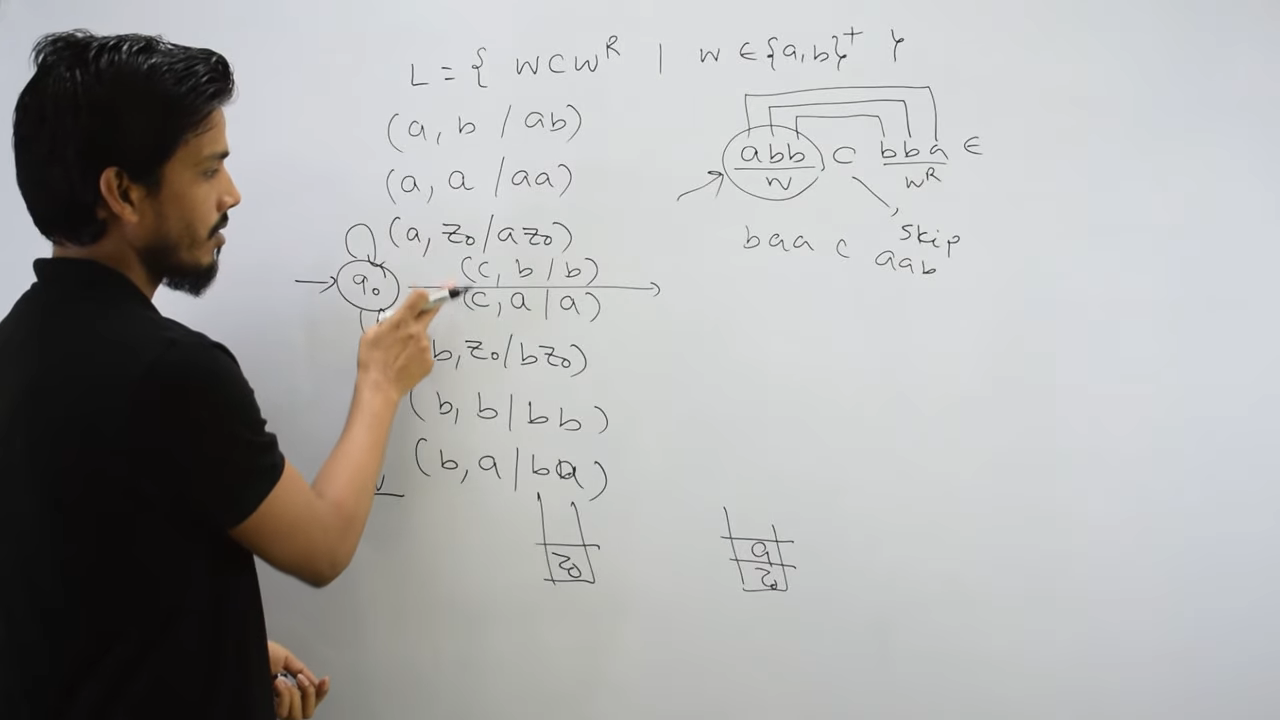 L = { wcw^R | w ∈ {a,b}^+ }
(a, b / ab)
(a, a / aa)
(a, z₀ / az₀)
q₀
(c, b / b)
(c, a | a)
b, z₀ / bz₀)
(b, b | bb)
(b, a | ba)
abb c bba ∈
w w^R
skip
baa c aab
z₀
a
z₀